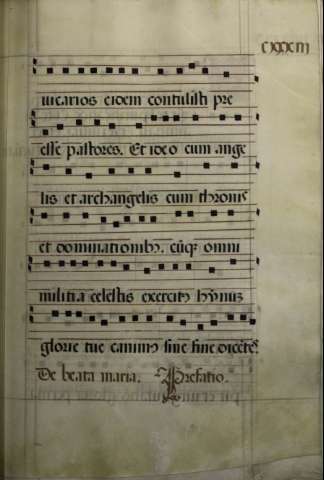 cxxciii
uicarios eidem contulisti pre
esse pastores. Et ideo cum ange
lis et archangelis cum thronis
et dominationibꝫ. cūqꝫ omni
militia celestis exercitꝰ hymnū
glorie tue canimꝰ sine fine dicētes.
De beata maria. Prefatio.